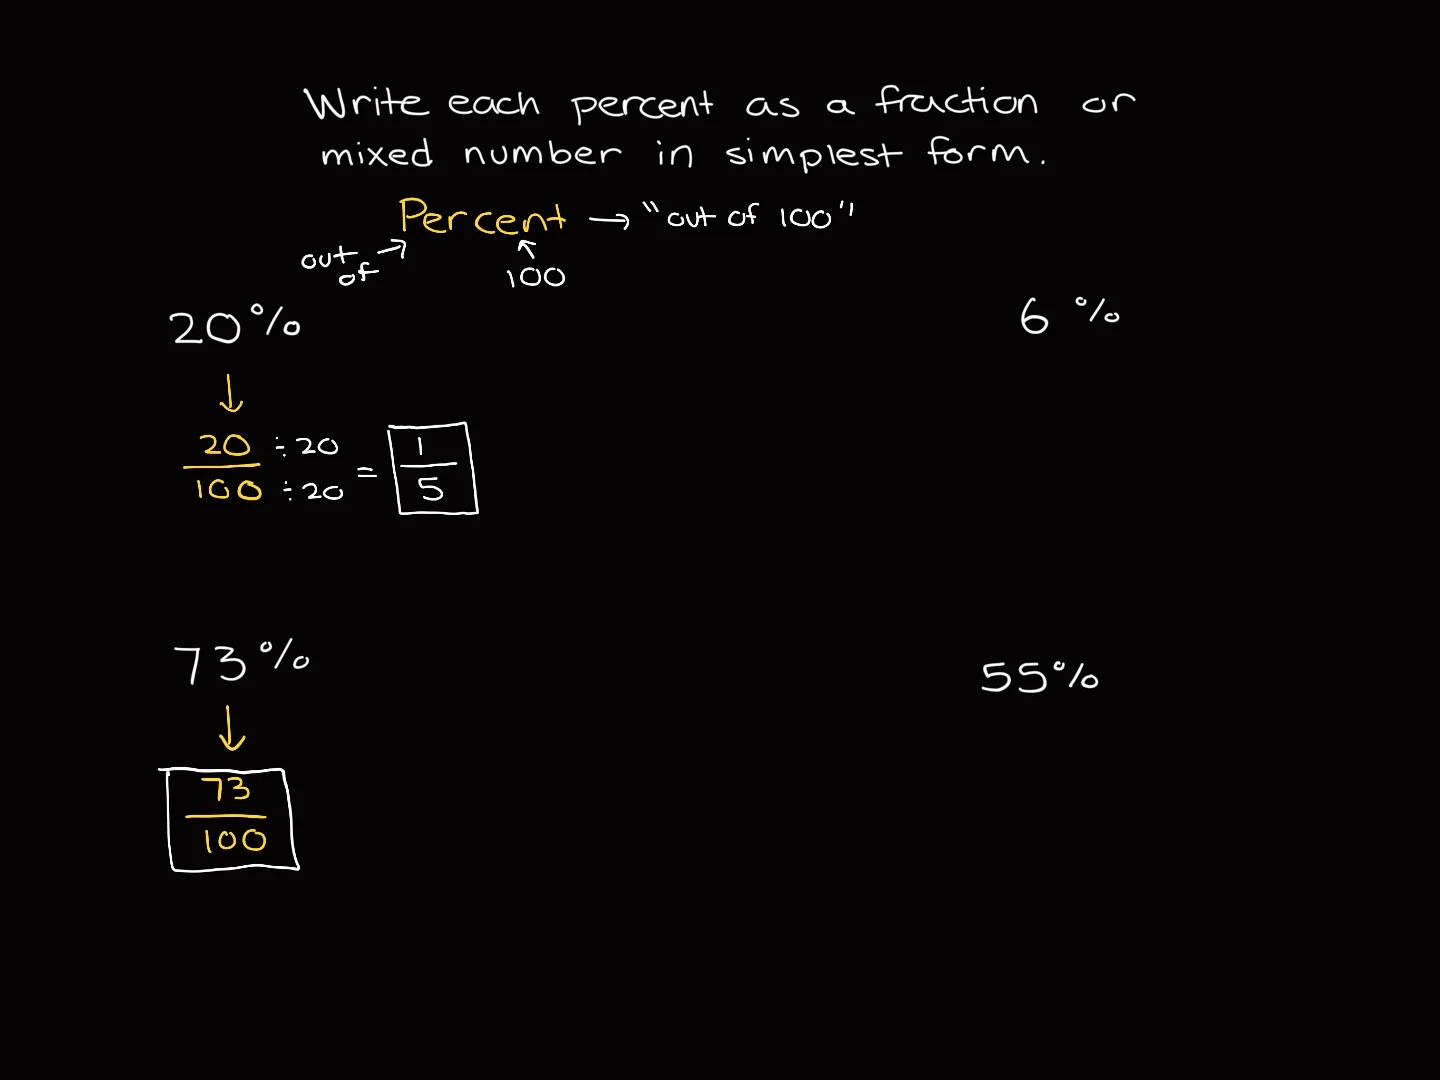 Write each percent as a fraction or
mixed number in simplest form.
Percent → "out of 100"
out of →
100
20%
6 %
↓
20 ÷ 20
100 ÷ 20
=
1
5
73%
55%
↓
73
100